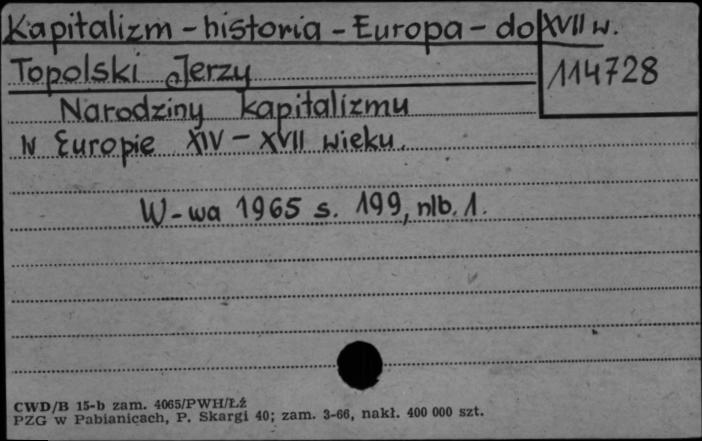 Kapitalizm - historia - Europa - do XVII w.
Topolski Jerzy
114728
Narodziny kapitalizmu
w Europie XIV - XVII wieku.
W-wa 1965 s. 199, nlb. 1.
CWD/B 15-b zam. 4065/PWH/Łź
PZG w Pabianicach, P. Skargi 40; zam. 3-66, nakł. 400 000 szt.